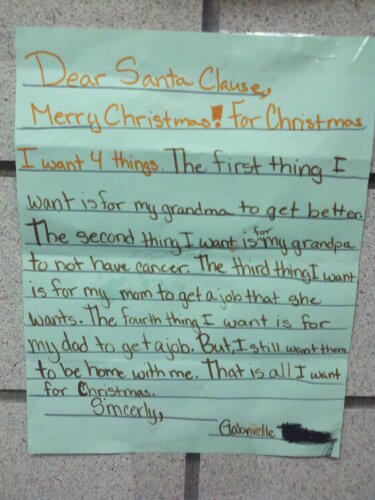 Dear Santa Clause,
Merry Christmas! For Christmas
I want 4 things. The first thing I
want is for my grandma to get better.
The second thing I want is for my grandpa
to not have cancer. The third thing I want
is for my mom to get a job that she
wants. The fourth thing I want is for
my dad to get a job. But, I still want them
to be home with me. That is all I want
for Christmas.
Sincerly,
Gabrielle